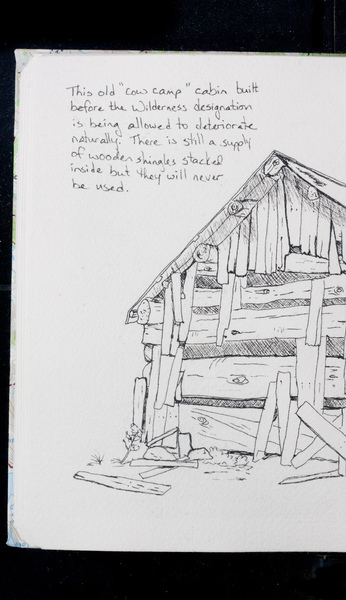 This old "cow camp" cabin built
before the Wilderness designation
is being allowed to deteriorate
naturally. There is still a supply
of wooden shingles stacked
inside but they will never
be used.